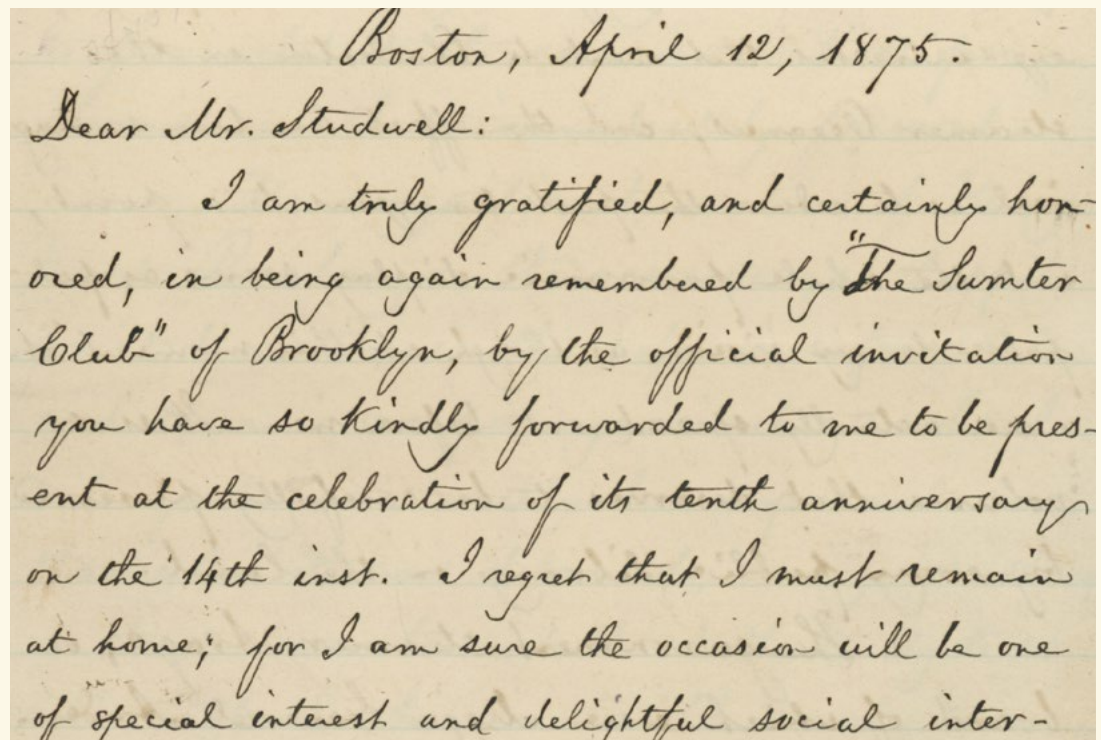 Boston, April 12, 1875.
Dear Mr. Studwell:
I am truly gratified, and certainly hon-
ored, in being again remembered by "The Sumter
Club" of Brooklyn, by the official invitation
you have so kindly forwarded to me to be pres-
ent at the celebration of its tenth anniversary
on the 14th inst. I regret that I must remain
at home; for I am sure the occasion will be one
of special interest and delightful social inter-